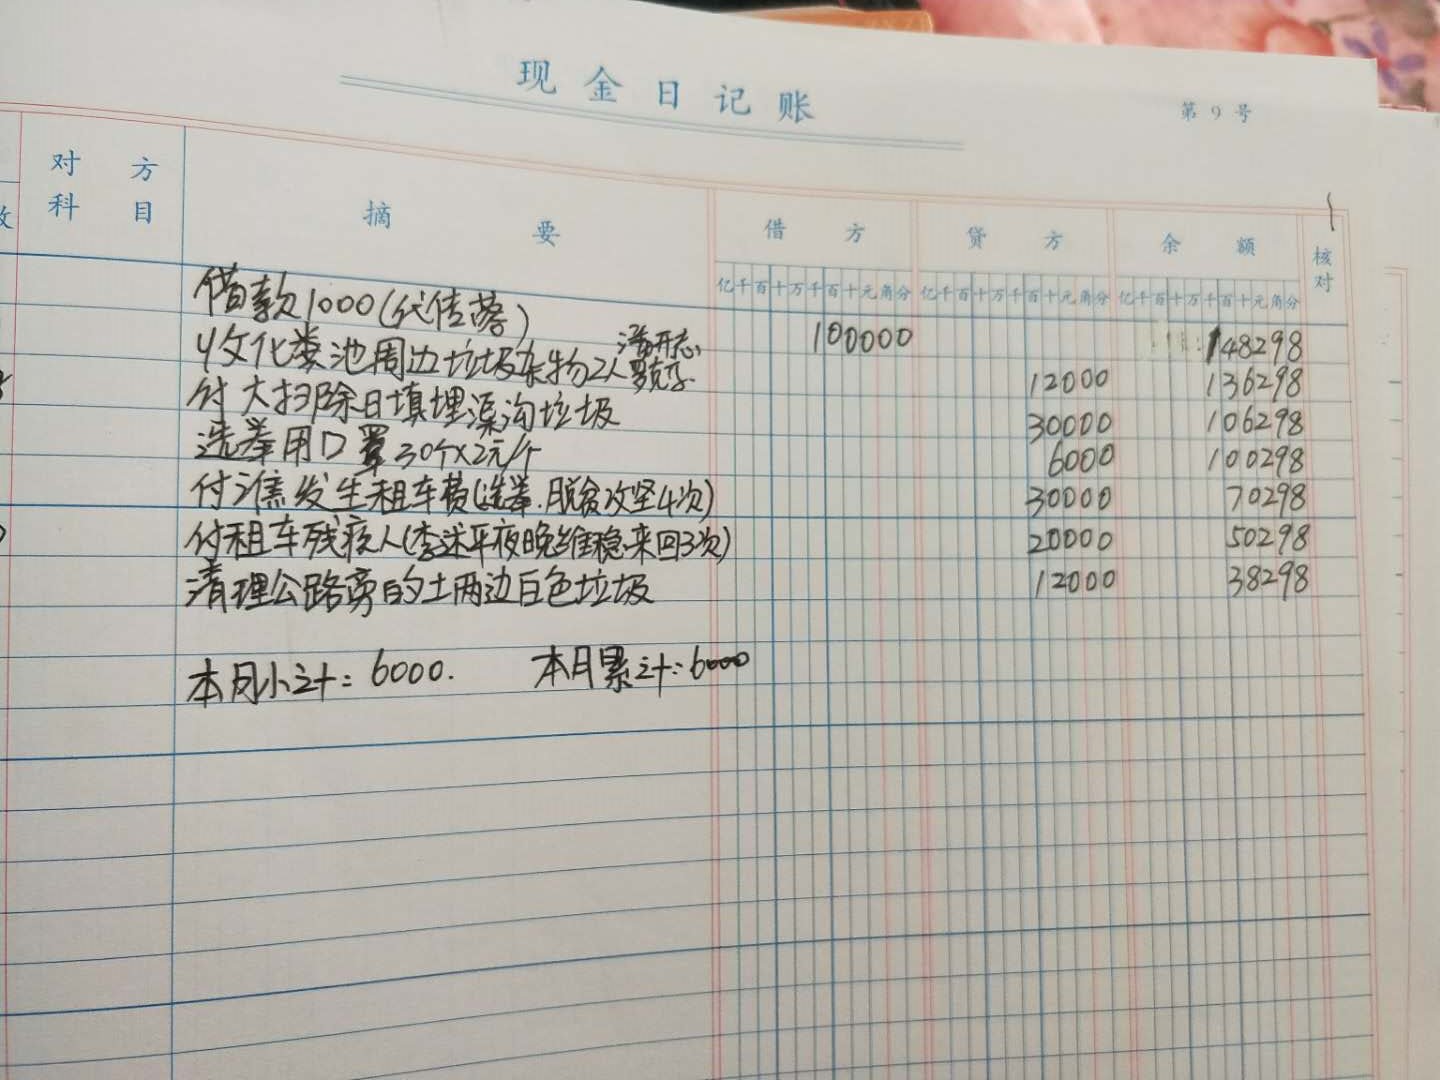 现金日记账
第9号
对方科目 摘要 借方 贷方 余额 核对
亿千百十万千百十元角分 亿千百十万千百十元角分 亿千百十万千百十元角分
借款1000(代佳蓉) 100000 148298
收化粪池周边垃圾杂物2人 12000 136298
付大扫除日填埋渠沟垃圾 30000 106298
选举用口罩30个×2元/个 6000 100298
付谯发生租车费(选举.脱贫攻坚4次) 30000 70298
付租车残疾人(李述平夜晚维稳来回3次) 20000 50298
清理公路旁的土两边白色垃圾 12000 38298
本月小计:6000. 本月累计:6000